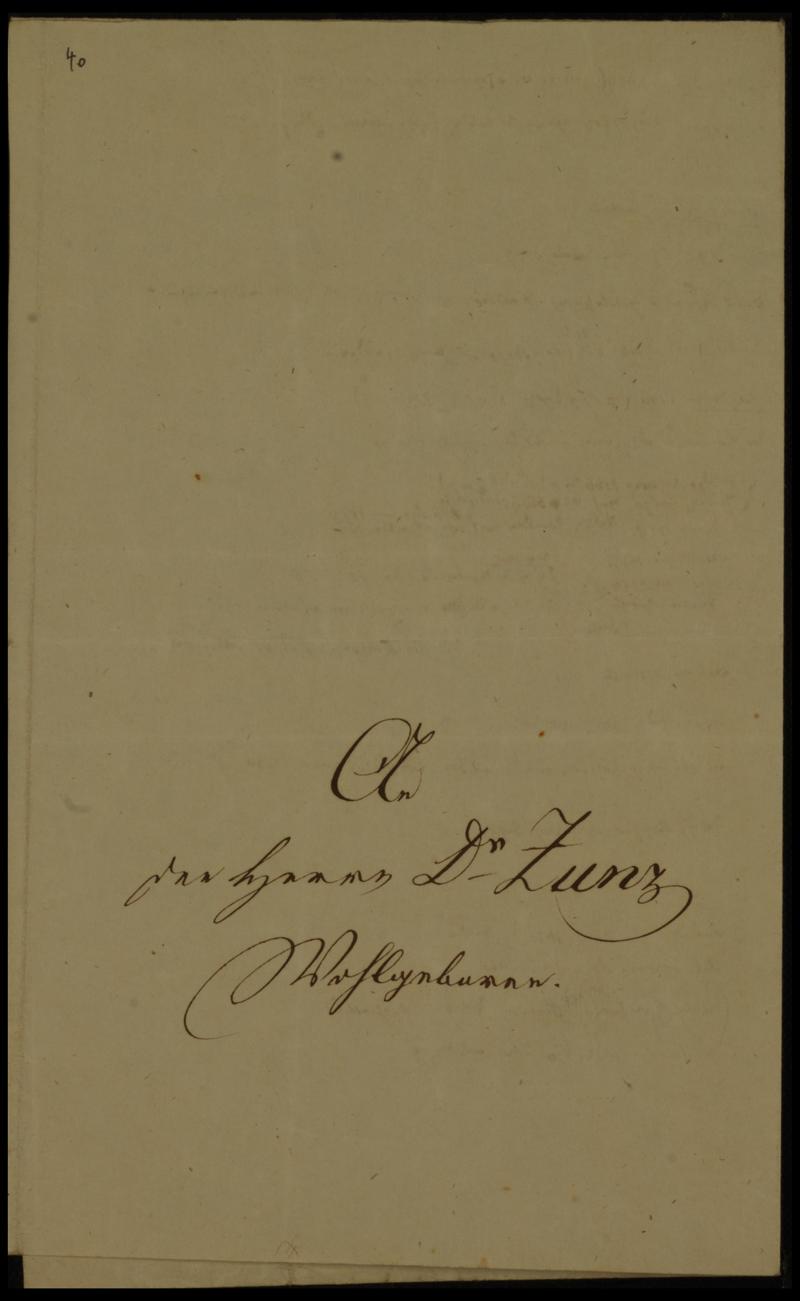 40
An
den Herrn Dr Zunz
Wohlgeboren.